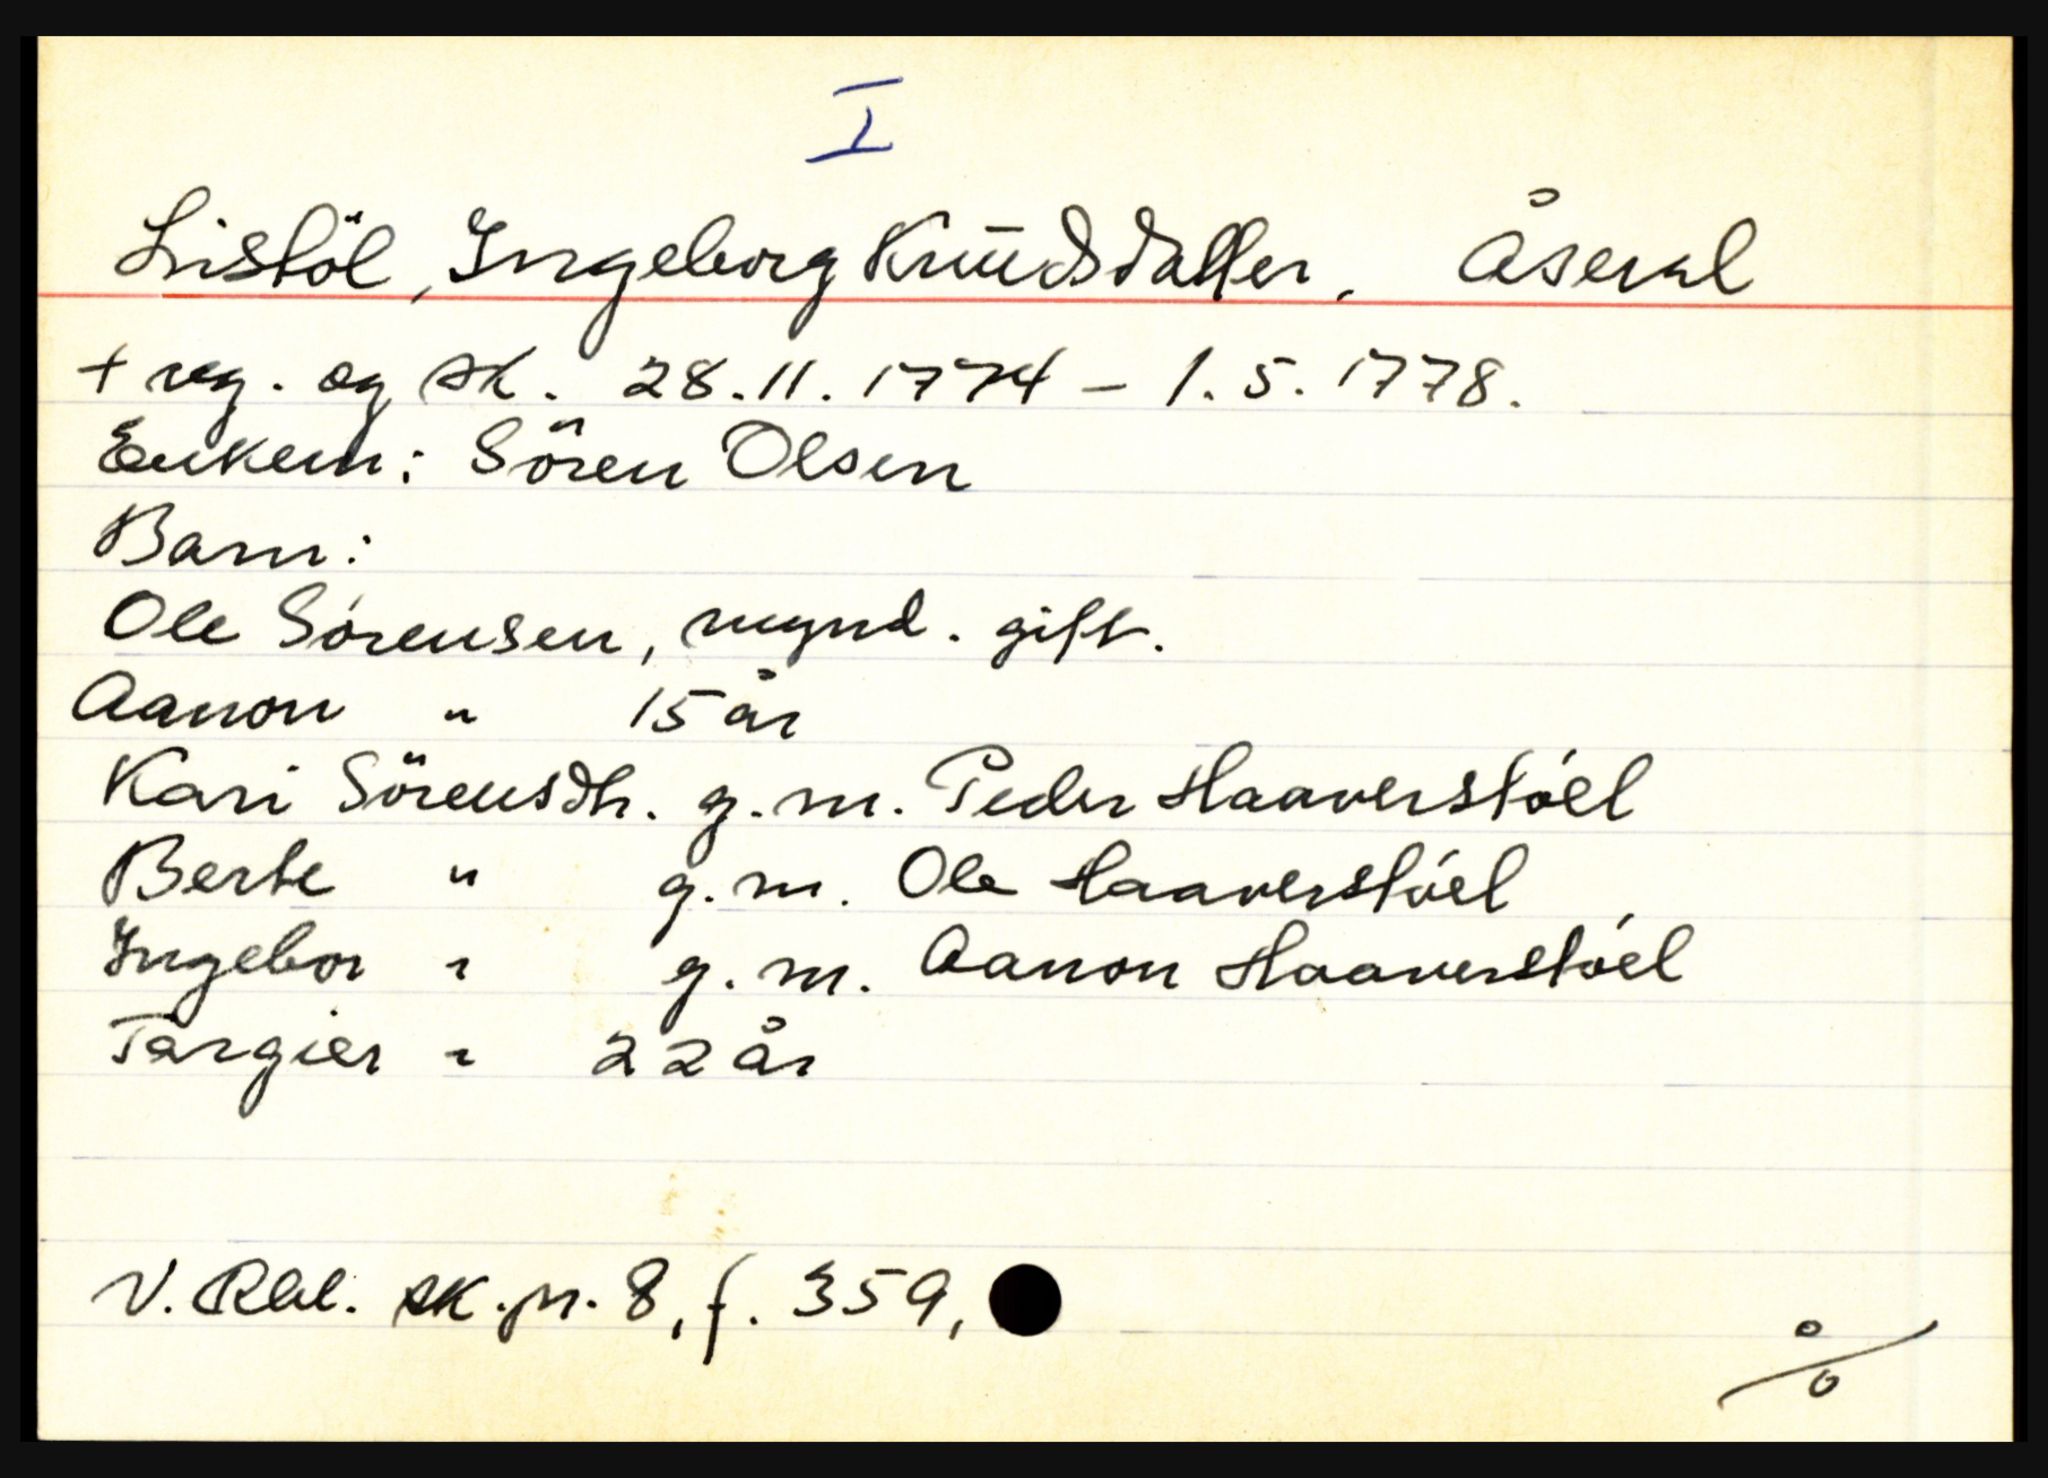 I
Listöl, Ingeborg Knudsdatter, Åseral
+ reg. og sk. 28.11.1774 - 1.5.1778.
Enkem: Sören Olsen
Barn:
Ole Sórensen, mynd. gift.
Aanon " 15 år
Kari Sörensdtr. g.m. Peder Haaverstóel
Berte " g.m. Ole Haaverstóel
Ingebor " g.m. Aanon Haaverstóel
Targier " 22 år
V. Rbl. sk.pr. 8, f. 359,
%